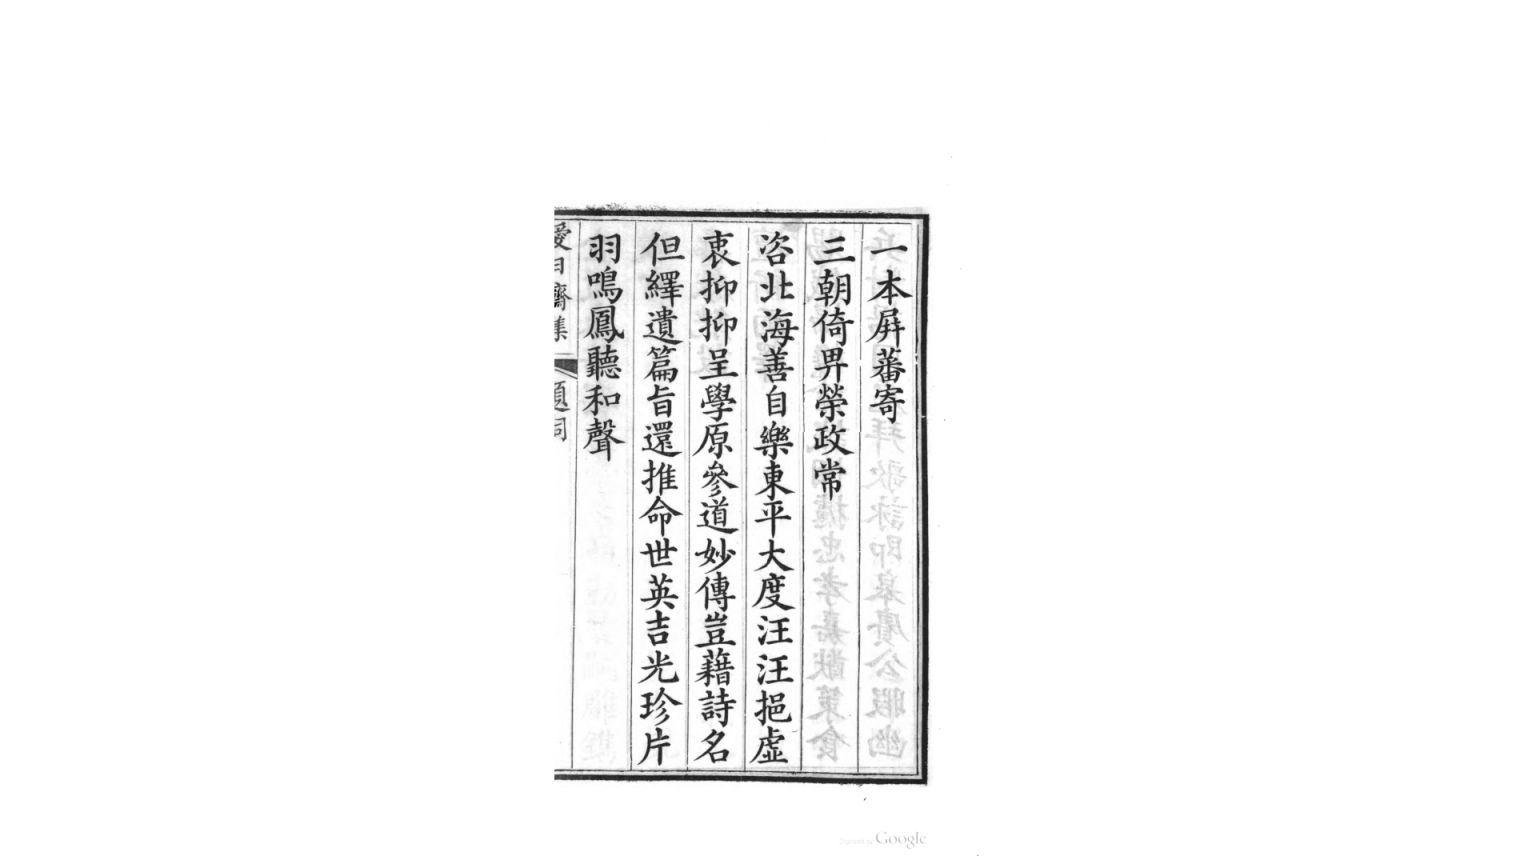 一本屛蕃寄
三朝倚畀榮政常
咨北海善自樂東平大度汪汪挹虛
衷抑抑呈學原參道妙傳豈藉詩名
但繹遺篇旨還推命世英吉光珍片
羽鳴鳳聽和聲
愛日齋集
題詞
Digitized by Google